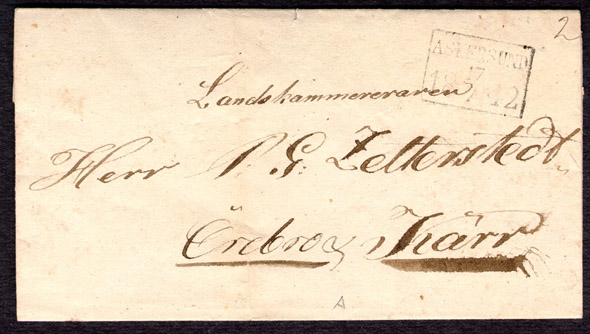 2
ASKERSUND
17
12
Landskammereraren
Herr P. G. Zetterstedt
Örebro & Kärr
A